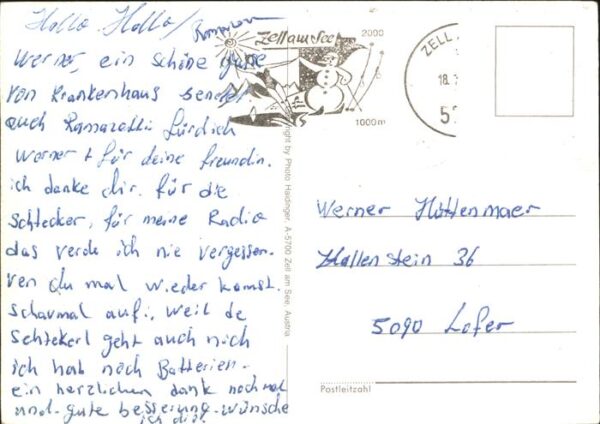 Hallo Hallo/
Werner, ein schöne guse
von Krankenhaus sendet
auch Ramazotti fürdich
Werner + für deine freundin.
ich danke dir. für die
schtecker, für meine Radio
das verde ich nie vergessen.
ven du mal wieder komst.
schavmal auf:, weil de
Schtekerl geht auch nich
ich hab noch Batterien.
ein herzlichen dank nochmal
und gute besserung-wünsche
ich dir.
Zell am See
2000
1000m
ZELL
18.
5
right by Photo Haidinger, A-5700 Zell am See, Austria
Werner Hüttenmaer
Hallenstein 36
5090 Lofer
Postleitzahl